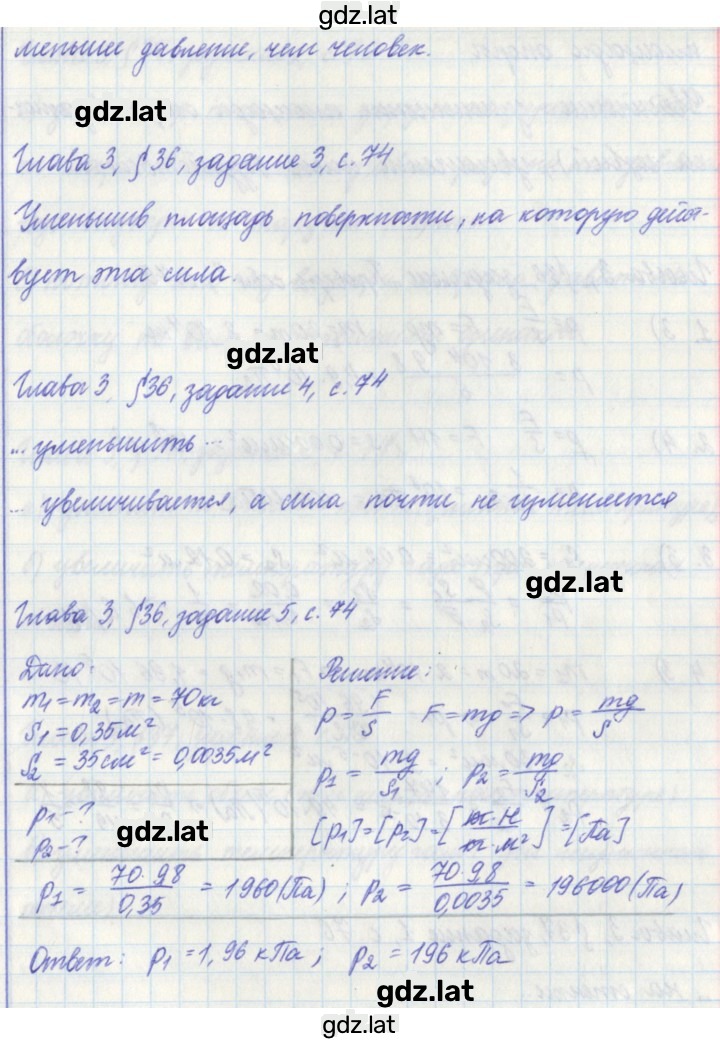 gdz.lat
меньшее давление, чем человек.
gdz.lat
Глава 3, §36, задание 3, с. 74
Уменьшив площадь поверхности, на которую дейст-
вует эта сила.
gdz.lat
Глава 3, §36, задание 4, с. 74
... уменьшить ...
... увеличивается, а сила почти не изменяется
gdz.lat
Глава 3, §36, задание 5, с. 74
Дано:
m₁ = m₂ = m = 70 кг
S₁ = 0,35 м²
S₂ = 35 см² = 0,0035 м²
p₁ - ?
p₂ - ?
gdz.lat
Решение:
p = F/S F = mg => p = mg/S
p₁ = mg/S₁ ; p₂ = mg/S₂
[p₁] = [p₂] = [кг·Н/кг·м²] = [Па]
p₁ = 70·9,8/0,35 = 1960 (Па) ; p₂ = 70·9,8/0,0035 = 196000 (Па)
Ответ: p₁ = 1,96 кПа ; p₂ = 196 кПа
gdz.lat
gdz.lat